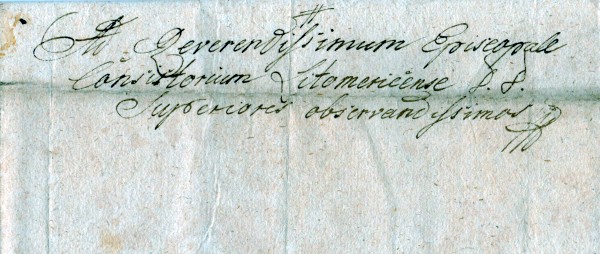 Ad Reverendissimum Episcopale
Consistorium Litomericense P. P.
Superiores observandissimos